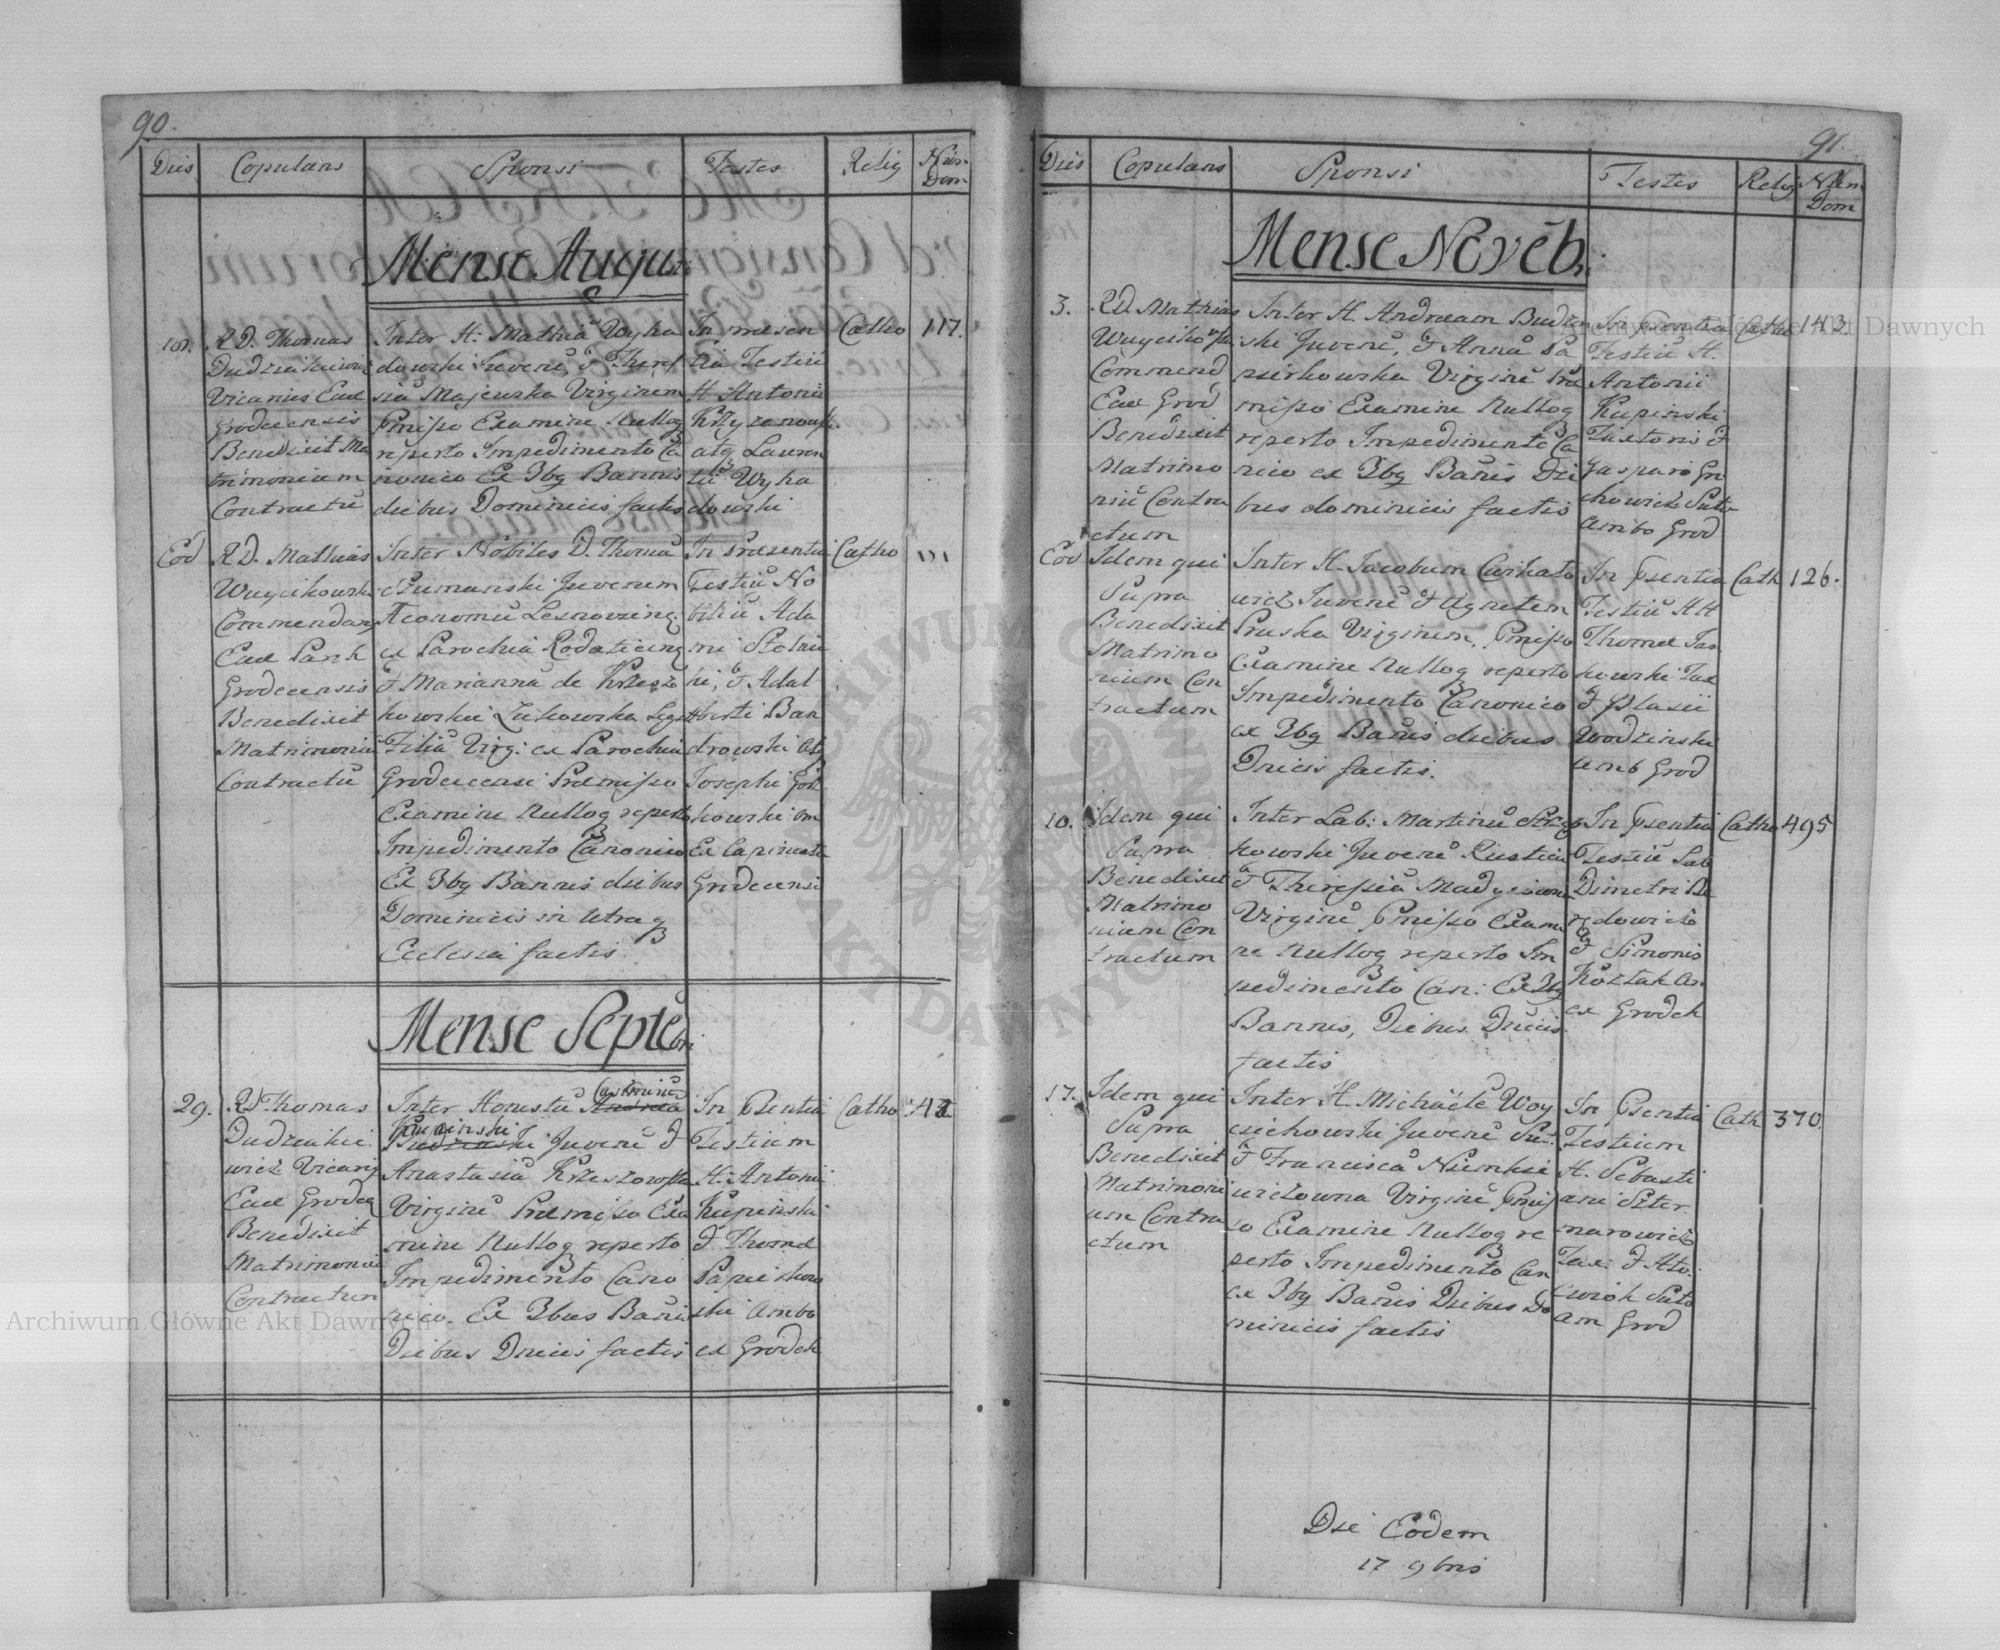 90.
Dies Copulans Sponsi Testes Relig Num Dom
Mense Augus
R D. Thomas
Vicarius Eccl
Grodecensis
Benedixit Ma
trimonium
Contractū
Inter H: Mathiā Wyha
dowski Juvenē, & Theres
siā Majewska Virginem
Pmisso Examine Nulloq
reperto Impedimento Ca
nonico Ex 3bq Bannis
diebus Dominicis factis
In praesen
tia Testiū
H Antonii
Krzyzanowsk
atq Lauren
tii Wyha
dowski
Catho
117.
Eod
R D. Mathias
Wuycikowski
Commendarq
Eccl Paroh
Grodecensis
Benedixit
Matrimoniū
Contractū
Inter Nobiles D. Thomā
Szumanski Juvenem
Æconomū
ex Parochia Rodaticenq
& Marianna de Krzecz
kowskie Zukowska Legit
Filiā Virg: ex Parochia
Grodecensi Præmisso
Examine Nulloq reperto
Impedimento Canonico
Ex 3bq Bannis diebus
Dominicis in Utraq
Eclesia factis
In Præsentia
Testiū No
biliū Ada
mi Stolnic
ki, & Adal
berti Ban
drowski atq
Josephi Gol
kowski om
Ex
Grodecensi
Catho
Mense Septē bri
29.
R D Thomas
Dudzinkie
wicz Vicariq
Eccl Grodeq
Benedixit
Matrimoniū
Contractum
Casimirū
Inter Honestū Andreā
Kupinski
Juvenē &
Anastasiā Krzeszowska
Virginē Præmisso Exa
mine Nulloq reperto
Impedimento Cano
nico. Ex 3bus Bañis
Diebus Dnicis factis
In Psentia
Testium
H. Antonii
Kupinski
& Thomæ
Papiezkow
ski Ambo
ex Grodek
Catho
91.
Dies Copulans Sponsi Testes Relig Num Dom
Mense Novēb
3.
R D. Mathias
Wuycikowski
Commend
Eccl Grod
Benedixit
Matrimo
niū Contra
ctum
Inter H. Andream Budzin
ski Juvenē, & Annā Pa
pierkowska Virginē Præ
misso Examine Nulloq
reperto Impedimento Ca
nico ex 3bq Bañis Die
bus dominicis factis
In Psentia
Testiū H.
Antonii
Kupinski
Textoris &
Gaspari Gro
chowicz Suto
ambo Grod
Catho
143
Eod
Idem qui
Supra
Benedixit
Matrimo
nium Con
tractum
Inter H. Jacobum
wicz Juvenē & Agnetem
Pruska Virginem, Pmisso
Examine Nulloq reperto
Impedimento Canonico
ex 3bq Bañis diebus
Dnicis factis.
In Psentia
Testiū HH
Thomæ Jas
kowski Tex
& Blasii
Wodzinski
amb Grod
Cath
126.
10.
Idem qui
Supra
Benedixit
Matrimo
nium Con
tractum
Inter Lab: Martinū
kowski Juvenē Rusticū
& Theresiā
Virginē Pmisso Exami
ne Nulloq reperto Im
pedimento Can: Ex 3bq
Bannis, Diebus Dnicis
factis
In Psentia
Testiū Lab
Dimetri
& Simonis
Koztak
ex Grodek
Catho
495
17.
Idem qui
Supra
Benedixit
Matrimoni
um Contra
ctum
Inter H. Michaële Woy
ciechowski Juvenē Sut:
& Franciscā Niemkie
wiczowna Virginē Pmis
so Examine Nulloq re
perto Impedimento Can
ex 3bq Bañis Diebus Do
minicis factis
In Psentia
Testium
H. Sebasti
ani Szter
narowicz
Tex: &
Suto
am Grod
Cath
370.
Die Eodem
17 9bris
Archiwum Główne Akt Dawnych
Archiwum Główne Akt Dawnych
ARCHIWUM GŁÓWNE AKT DAWNYCH